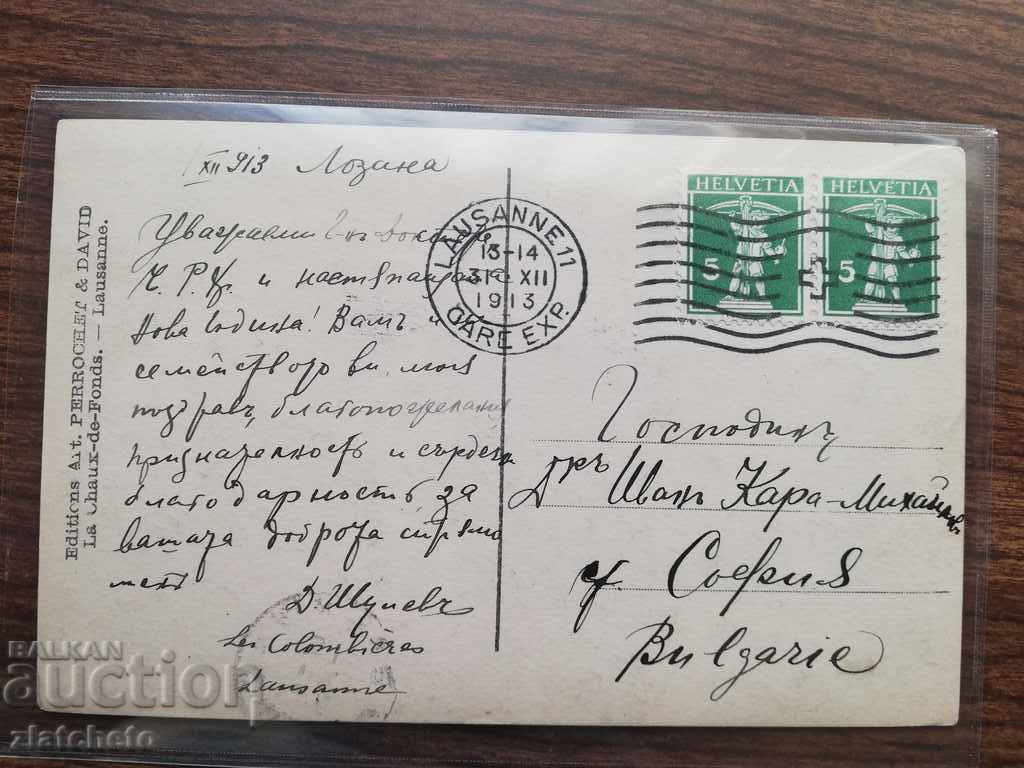 XII 913 Лозана
Уважаеми Г-нъ Докторе
Ч. Р. Х. и настѫпающата
Нова година! Вамъ и
семейството ви, моя
поздравъ, благопожелания
признателность и сърдечна
благодарность за
вашата доброта спрямо
менъ
Д Шулевъ
Les Colombières
Lausanne
Editions Art. PERROCHET & DAVID
La Chaux-de-Fonds. — Lausanne.
LAUSANNE 11
13-14
31 XII
1913
GARE EXP.
HELVETIA HELVETIA
5 5
Господинъ
Д-ръ Иванъ Кара-Михайловъ
гр. София
Bulgarie
BALKAN
auction
zlatcheto